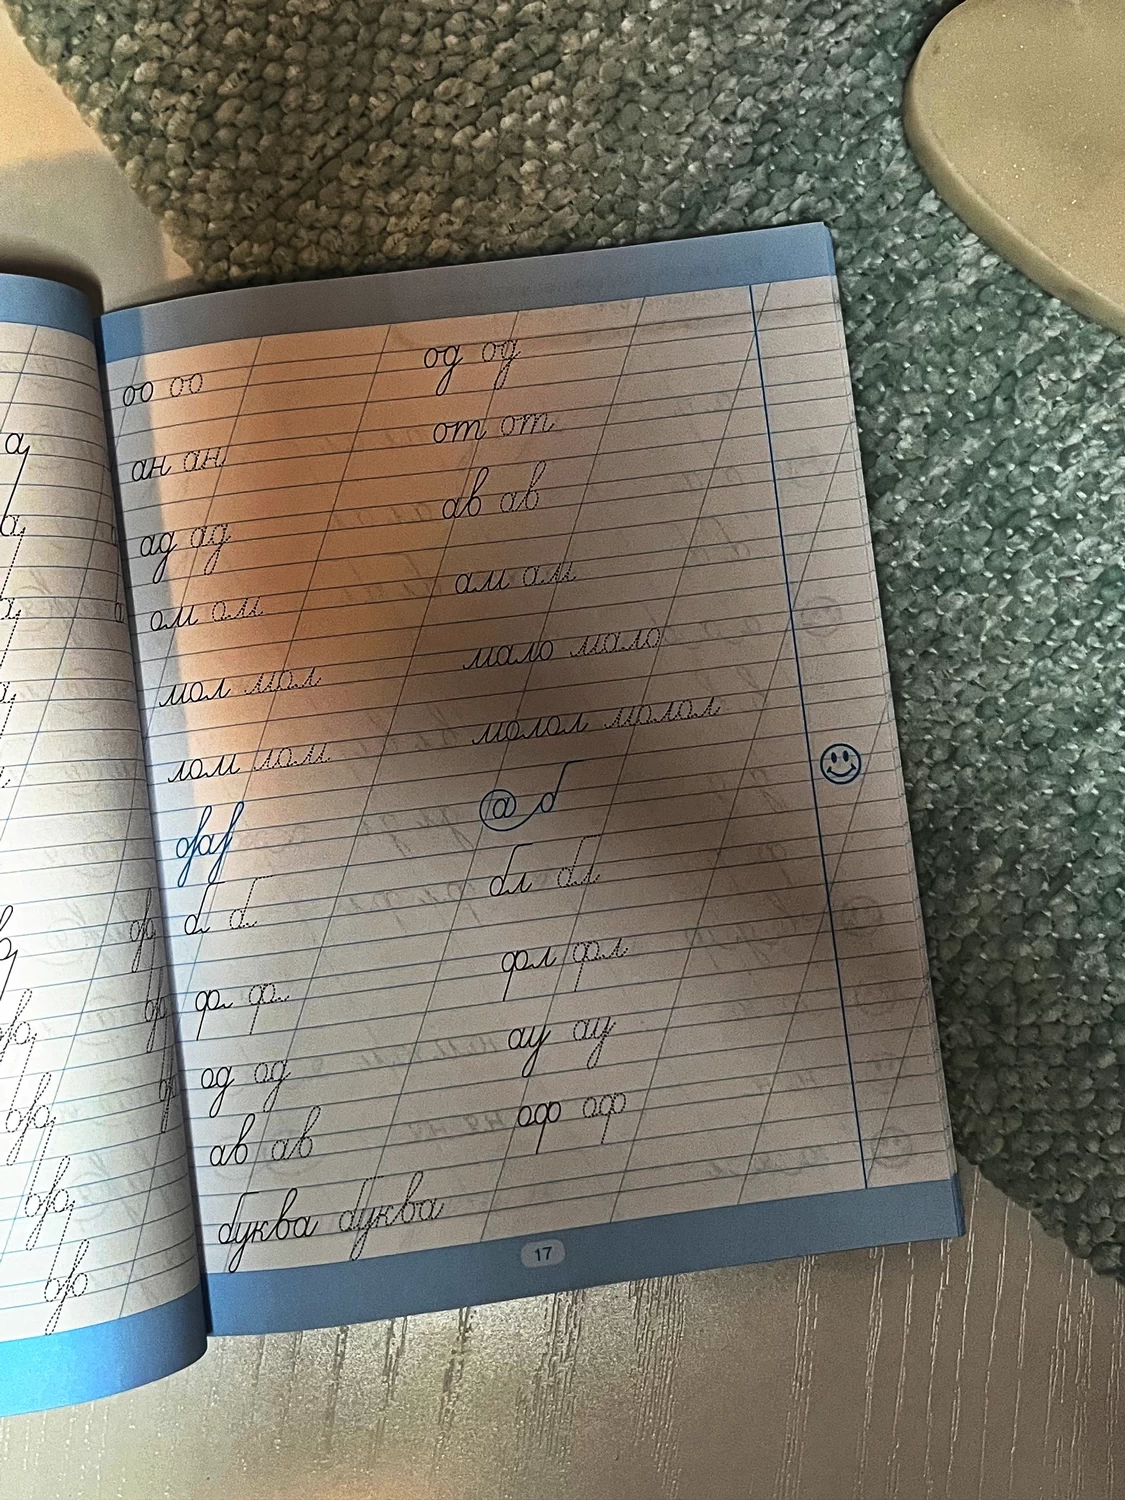 оо оо од од
ан ан от от
ад ад ав ав
ом ом ам ам
мол мол мало мало
лом лом молол молол
@ б
б б бл бл
ф ф фл фл
од од ау ау
ав ав оф оф
буква буква
17